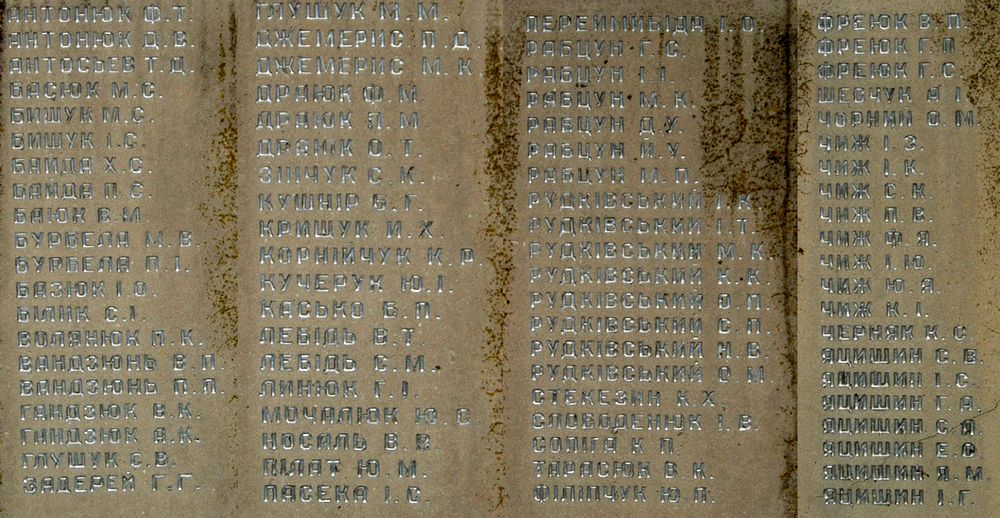 АНТОНЮК Ф.Т.
АНТОНЮК Д.В.
АНТОСЬЕВ Т.Д.
БАСЮК М.С.
БИШУК М.С.
БИШУК І.С
БАЙДА Х.С.
БАЙДА П.С.
БАЮК В.М
БУРБЕЛА М.В.
БУРБЕЛА П.І.
БАЗЮК І.О.
БІЛИК С.І.
ВОЛЯНЮК П.К.
ВАНДЗЮНЬ В.П.
ВАНДЗЮНЬ П.П.
ГАНДЗЮК В.К.
ГАНДЗЮК А.К.
ГЛУШУК С.В.
ЗАДЕРЕЙ Г.Г.
ГЛУШУК М.М.
ДЖЕМЕРИС П.Д.
ДЖЕМЕРИС М.К
ДРАЮК Ф.М.
ДРАЮК П.М.
ДРАЮК О.Т.
ЗІНЧУК С.К.
КУШНІР Б.Г.
КРИЩУК И.Х.
КОРНІЙЧУК К.Р.
КУЧЕРУК Ю.І.
КАСЬКО В.П.
ЛЕБІДЬ В.Т.
ЛЕБІДЬ Є.М.
ЛИНЮК Г.І.
МОЧАЛЮК Ю.С
НОСАЛЬ В.В.
ПІЛАТ Ю.М.
ПАСЕКА І.С.
І.О.
РАБЦУН Г.С.
РАБЦУН І.І.
РАБЦУН М.К.
РАБЦУН Д.У.
РАБЦУН Й.У.
РАБЦУН М.П.
РУДКІВСЬКИЙ І.К.
РУДКІВСЬКИЙ І.Т.
РУДКІВСЬКИЙ М.К
РУДКІВСЬКИЙ К.К.
РУДКІВСЬКИЙ О.П
РУДКІВСЬКИЙ С.П.
РУДКІВСЬКИЙ Н.В.
РУДКІВСЬКИЙ О М.
СТЕКЕЗИН К.Х.
СЛОВОДЕНЮК І.В.
СОПІГА К П.
ТАРАСЮК В К.
ФІЛІПЧУК Ю.П.
ФРЕЮК В.П.
ФРЕЮК Г.П.
ФРЕЮК Г.С.
ШЕВЧУК А.І.
ЧОРНИЙ О.М
ЧИЖ І.З.
ЧИЖ І.К.
ЧИЖ С.К.
ЧИЖ П.В.
ЧИЖ Ф.Я.
ЧИЖ І.Ю.
ЧИЖ Ю.Я.
ЧИЖ К.І.
ЧЕРНЯК К.С
ЯЦИШИН С.В.
ЯЦИШИН І.С.
ЯЦИШИН Г.А.
ЯЦИШИН С.Я.
ЯЦИШИН Е.О.
ЯЦИШИН Я.М.
ЯЦИШИН І.Г.